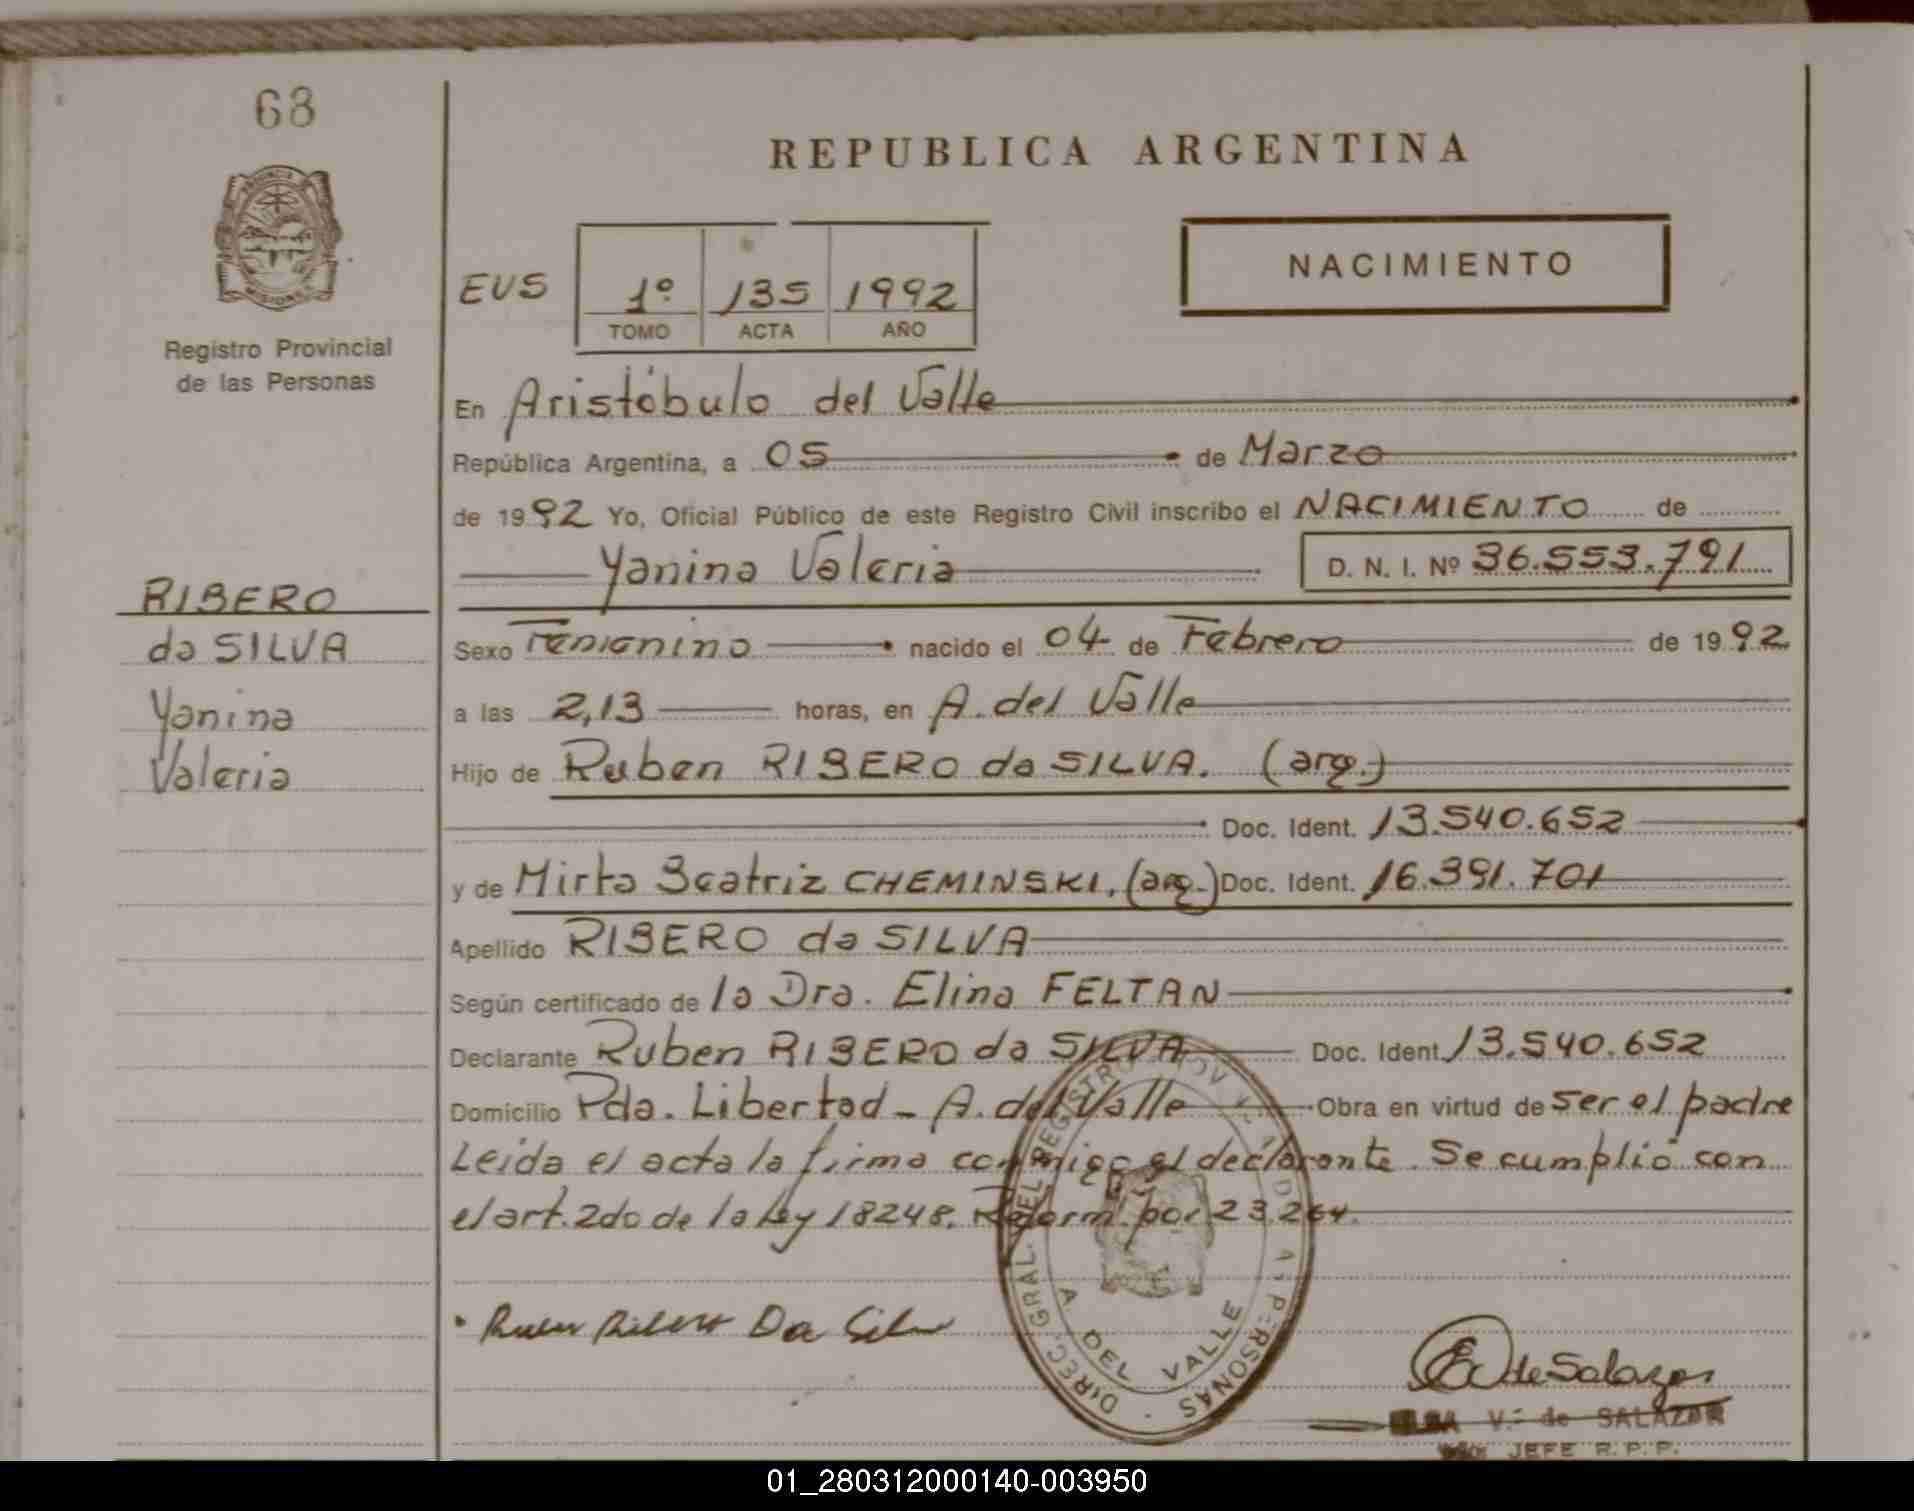 68
REPUBLICA ARGENTINA
PROVINCIA DE
MISIONES
Registro Provincial
de las Personas
EUS
1º 135 1992
TOMO ACTA AÑO
NACIMIENTO
En Aristóbulo del Valle
República Argentina, a 05 de Marzo
de 1992 Yo, Oficial Público de este Registro Civil inscribo el NACIMIENTO de
Yanina Valeria D. N. I. Nº 36.553.791
RIBERO
da SILVA
Yanina
Valeria
Sexo Femenino nacido el 04 de Febrero de 1992
a las 2,13 horas, en A. del Valle
Hijo de Ruben RIBERO da SILVA. (arg.)
Doc. Ident. 13.540.652
y de Mirta Beatriz CHEMINSKI, (arg.) Doc. Ident. 16.391.701
Apellido RIBERO da SILVA
Según certificado de la Dra. Elina FELTAN
Declarante Ruben RIBERO da SILVA Doc. Ident. 13.540.652
Domicilio Pda. Libertad - A. del Valle Obra en virtud de ser el padre
Leida el acta la firma conmigo el declarante. Se cumplió con
el art. 2do de la ley 18248. Reform. por 23.264.
DIREC. GRAL. DEL REGISTRO PROV. DE PERSONAS
A. DEL VALLE
Ruben Ribero Da Silva
E V de Salazar
V. de SALAZAR
JEFE R. P. P.
01_280312000140-003950